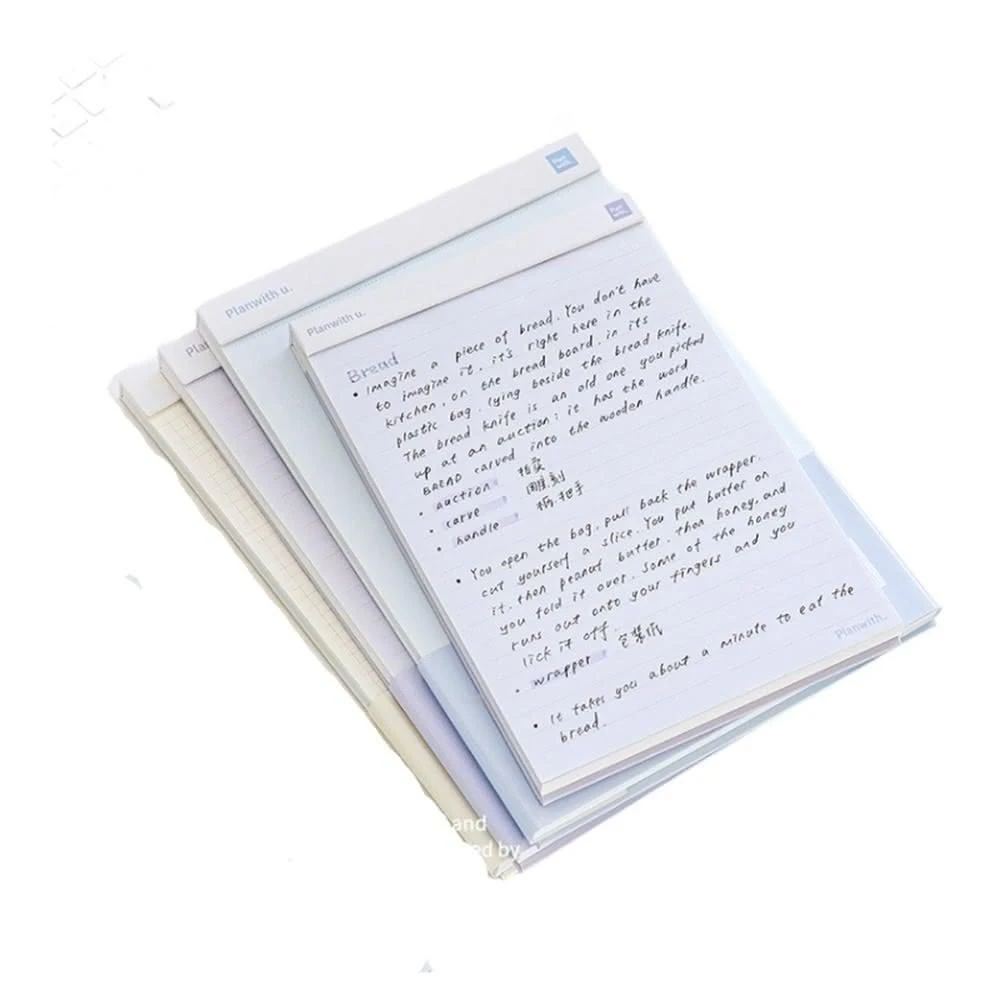 Plan
with.
Planwith u.
Plan
with.
Planwith u.
Pla
Bread
• Imagine a piece of bread. You don't have
to imagine it, it's right here in the
kitchen, on the bread board, in its
plastic bag, lying beside the bread knife.
The bread knife is an old one you picked
up at an auction; it has the word
BREAD carved into the wooden handle.
• auction 拍卖
• carve 雕刻
• handle 柄.把手
• You open the bag, pull back the wrapper.
cut yourself a slice. You put butter on
it, then peanut butter, then honey, and
you fold it over. Some of the honey
runs out onto your fingers and you
lick it off.
• wrapper 包装纸
• It takes you about a minute to eat the
bread.
Planwith.
and
ed by